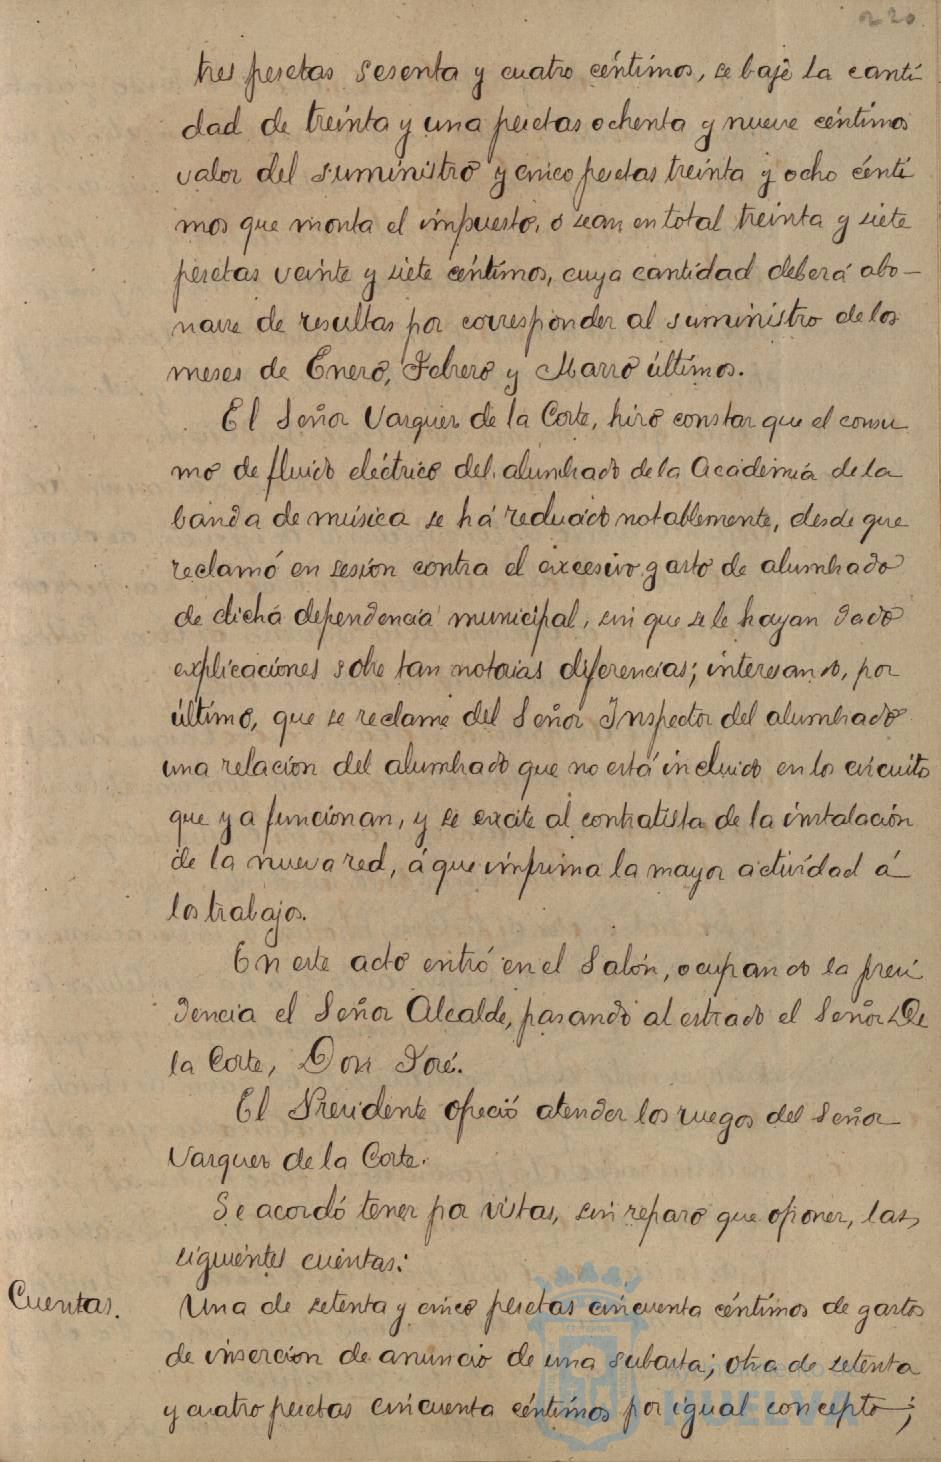 220
tres pesetas sesenta y cuatro céntimos, se baje la canti
dad de treinta y una pesetas ochenta y nueve céntimos
valor del suministro y cinco pesetas treinta y ocho cénti
mos que monta el impuesto, o sean en total treinta y siete
pesetas veinte y siete céntimos, cuya cantidad deberá abo-
narse de resultas por corresponder al suministro de los
meses de Enero, Febrero y Marzo últimos.
El Señor Vazquez de la Corte, hizo constar que el consu
mo de fluido eléctrico del alumbrado de la Academia de la
banda de música se há reducido notablemente, desde que
reclamó en sesion contra el excesivo gasto de alumbrado
de dicha dependencia municipal, sin que se le hayan dado
explicaciones sobre tan notorias diferencias; interesando, por
último, que se reclame del Señor Inspector del alumbrado
una relacion del alumbrado que no está incluido en los circuitos
que ya funcionan, y se excite al contratista de la instalación
de la nueva red, á que imprima la mayor actividad á
los trabajos.
En este acto entró en el Salón, ocupando la presi
dencia el Señor Alcalde, pasando al estrado el Señor De
la Corte, Don José.
El Presidente ofreció atender los ruegos del Señor
Vazquez de la Corte.
Se acordó tener por vistas, sin reparo que oponer, las
siguientes cuentas:
Cuentas. Una de setenta y cinco pesetas cincuenta céntimos de gastos
de insercion de anuncio de una subasta; otra de setenta
y cuatro pesetas cincuenta céntimos por igual concepto;
Ayuntamiento de
HUELVA